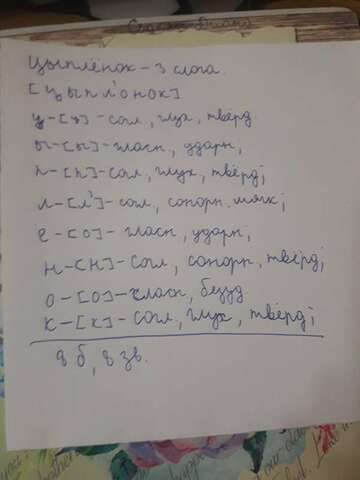 Цыплёнок - 3 слога.
[цыпл'онок]
ц-[ц]-согл, глух, твёрд.
ы-[ы]-гласн, ударн,
п-[п]-согл, глух, твёрд;
л-[л']-согл, сонорн. мягк;
ё-[о]- гласн, ударн;
н-[н]-согл, сонорн, твёрд;
о-[о]-гласн, безуд
к-[к]-согл, глух, твёрд;
8 б, 8 зв.